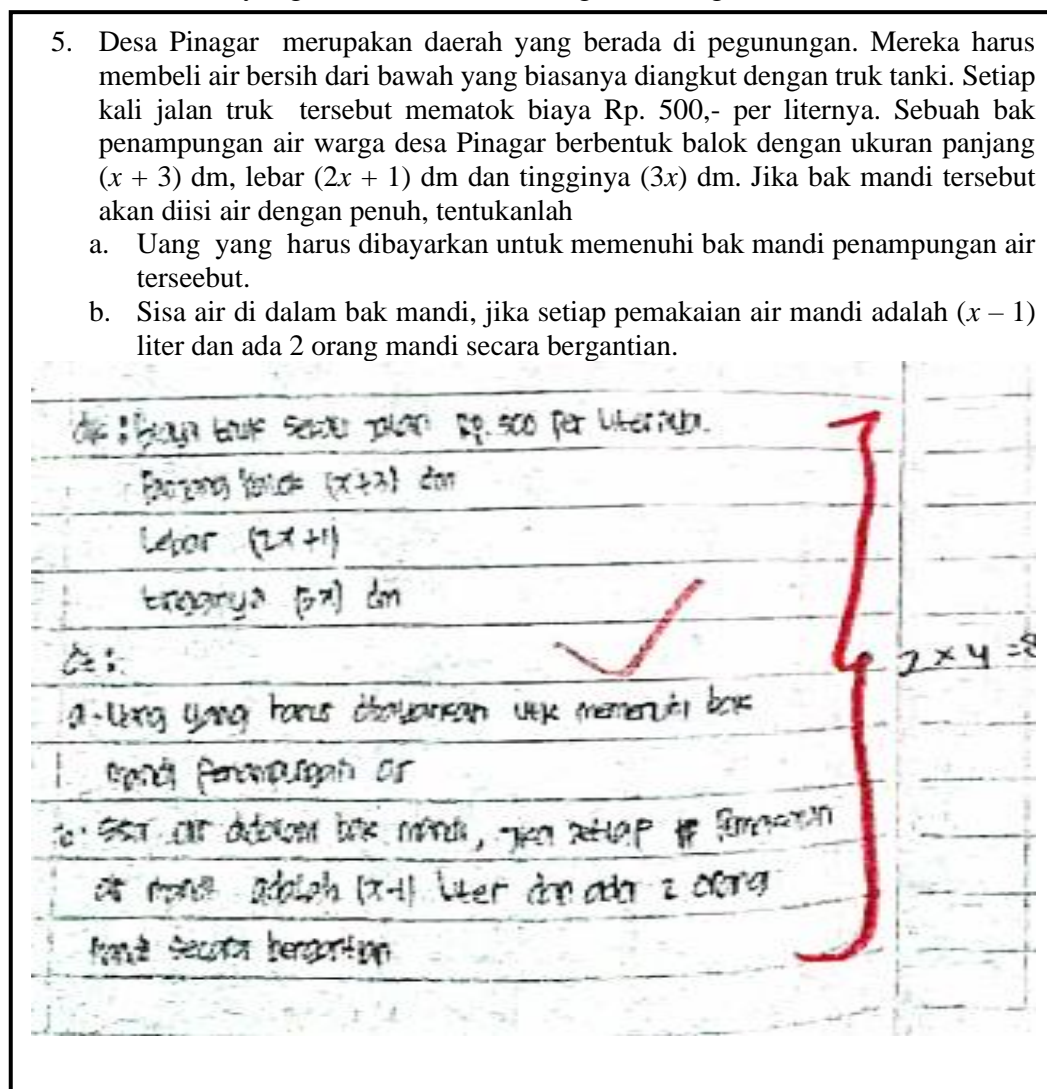 5. Desa Pinagar merupakan daerah yang berada di pegunungan. Mereka harus
membeli air bersih dari bawah yang biasanya diangkut dengan truk tanki. Setiap
kali jalan truk tersebut mematok biaya Rp. 500,- per liternya. Sebuah bak
penampungan air warga desa Pinagar berbentuk balok dengan ukuran panjang
(x + 3) dm, lebar (2x + 1) dm dan tingginya (3x) dm. Jika bak mandi tersebut
akan diisi air dengan penuh, tentukanlah
a. Uang yang harus dibayarkan untuk memenuhi bak mandi penampungan air
terseebut.
b. Sisa air di dalam bak mandi, jika setiap pemakaian air mandi adalah (x – 1)
liter dan ada 2 orang mandi secara bergantian.
Biaya truk jalan Rp. 500 Per Liternya.
Panjang (x+3) dm
Lebar (2x+1)
tingginya (3x) dm
2 x 4 = 8
a. Uang yang harus dibayarkan utk memenuhi bak
mandi Penampungan air
Sisa air didalam bak mandi, setiap
air mandi adalah (x-1) liter dan ada 2 orang
mandi secara bergantian